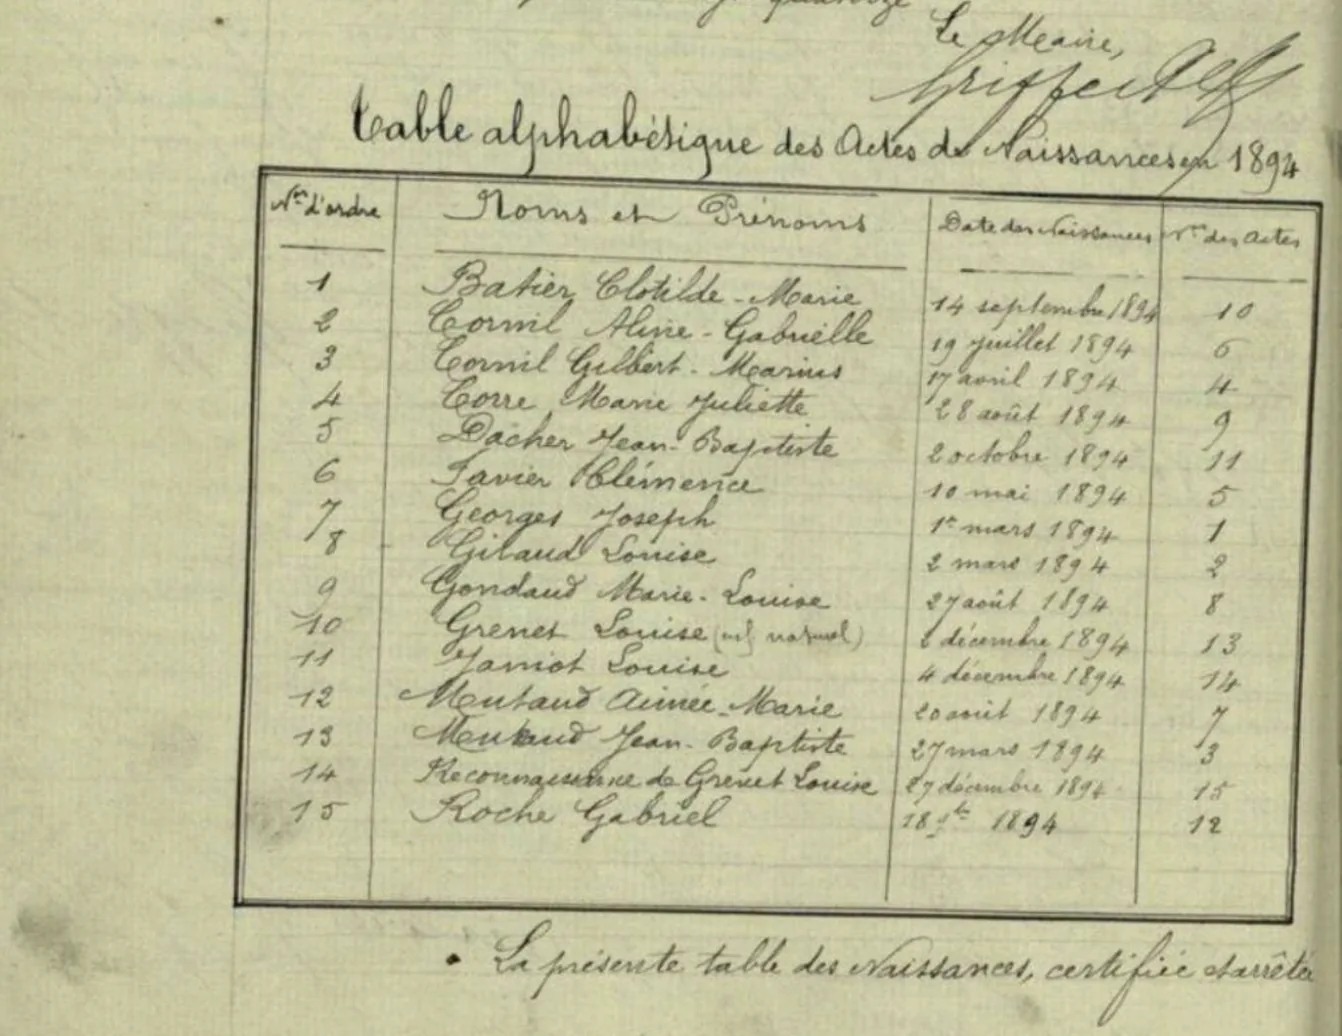 Le Maire,
Table alphabétique des Actes de Naissances en 1894
Nos d'ordre Noms et Prénoms Date des Naissances Nos des Actes
1 Batier Clotilde-Marie 14 septembre 1894 10
2 Cornil Aline-Gabrielle 19 Juillet 1894 6
3 Cornil Gilbert-Marius 17 avril 1894 4
4 Corre Marie Juliette 28 août 1894 9
5 Dacher Jean-Baptiste 2 octobre 1894 11
6 Favier Clémence 10 mai 1894 5
7 Georges Joseph 1er mars 1894 1
8 Gilaud Louise 2 mars 1894 2
9 Gondaud Marie-Louise 27 août 1894 8
10 Grenet Louise naturel) 2 décembre 1894 13
11 Jamiot Louise 4 décembre 1894 14
12 Aimée-Marie 20 août 1894 7
13 Jean-Baptiste 27 mars 1894 3
14 Reconnaissance de Grenet Louise 27 décembre 1894 15
15 Roche Gabriel 18 1894 12
La présente table des Naissances, certifiée et arrêtée